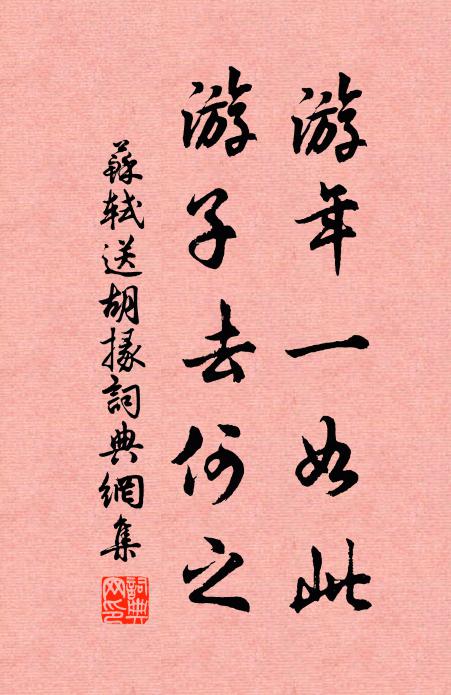 游年一如此
游子去何之
蘇軾送胡掾詞典網集
詞典网印